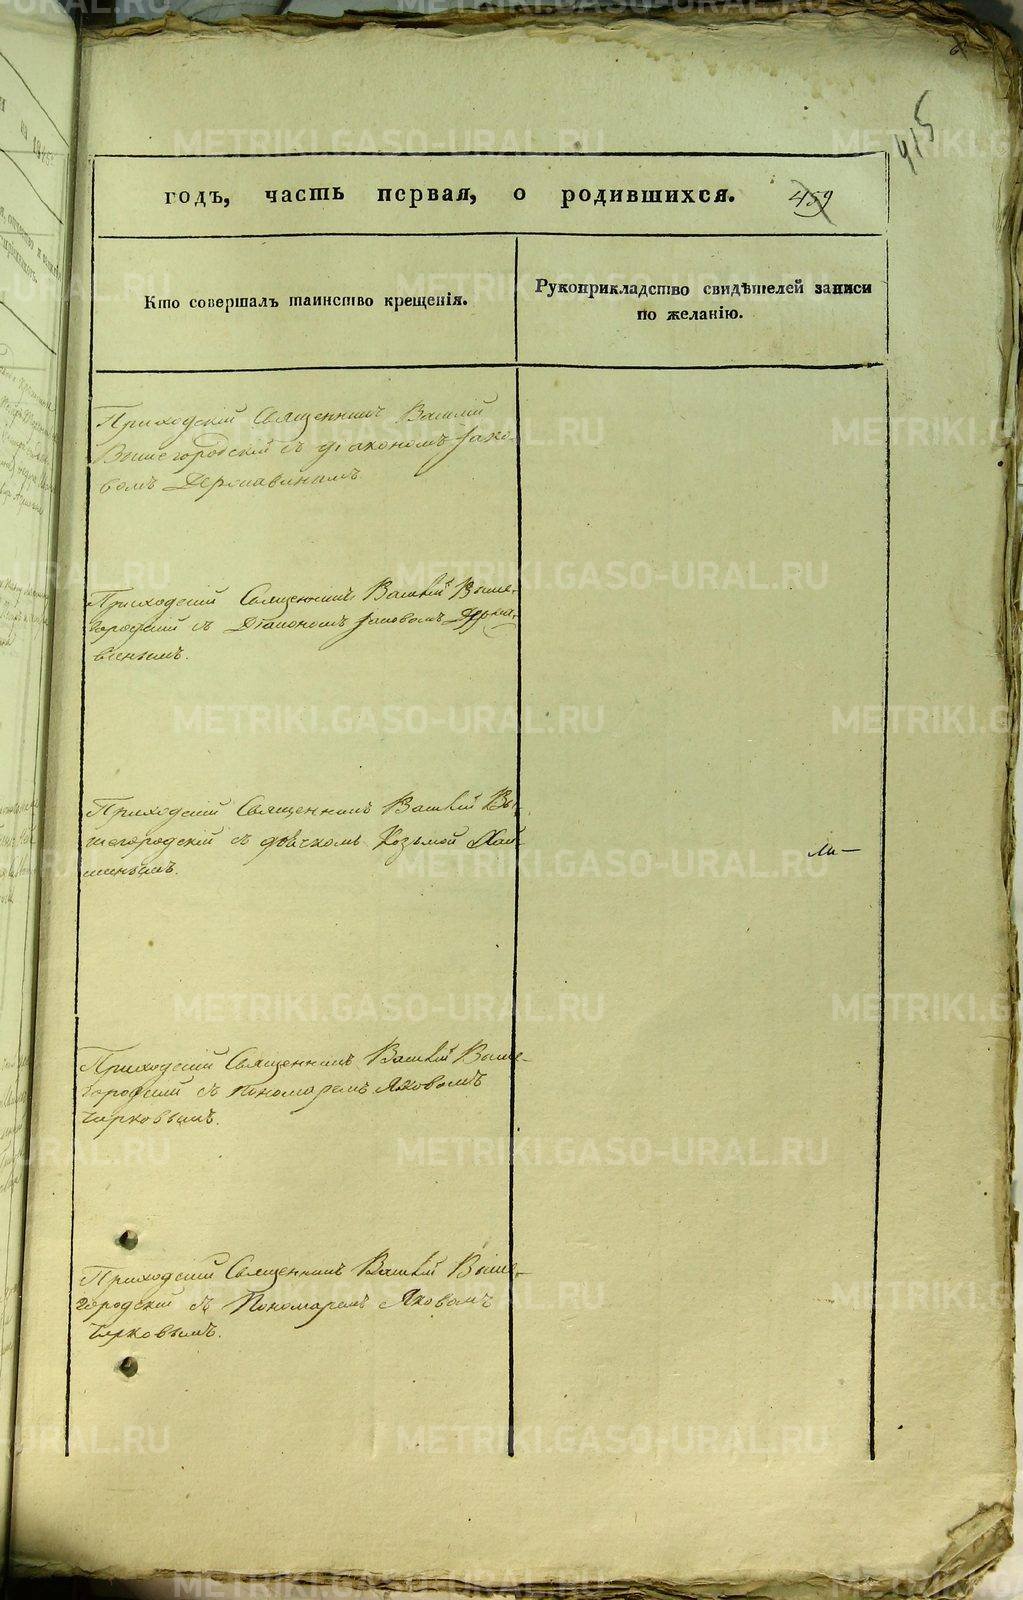 415
годъ, часть первая, о родившихся. 459
Кто совершалъ таинство крещенія.
Рукоприкладство свидѣтелей записи
по желанію.
Приходскій Священникъ Василій
Вышегородскій съ діакономъ Яко-
вомъ Державинымъ
Приходскій Священникъ Василій Выше-
городскій съ Діакономъ Яковомъ Держа-
винымъ.
Приходскій Священникъ Василій Вы-
шегородскій съ дьячкомъ Козьмой
Приходскій Священникъ Василій Выше-
городскій съ Пономаремъ Яковомъ
Чирковымъ.
Приходскій Священникъ Василій Выше-
городскій съ Пономаремъ Яковомъ
Чирковымъ.
METRIKI.GASO-URAL.RU